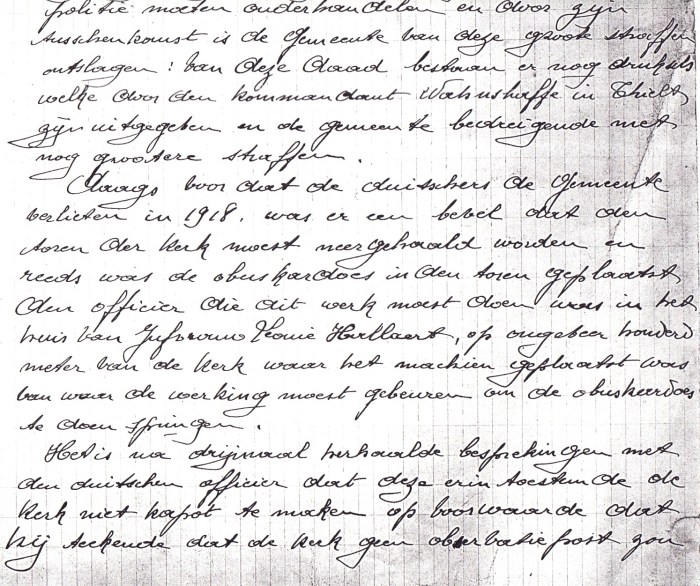 politie moeten onderhandelen en door zijn
tusschenkomst is de Gemeente van deze groote straffen
ontslagen: van deze daad bestaan er nog druksels
welke door den kommandant Wahnshaffe in Thielt,
zijn uitgegeben en de gemeente bedreigende met
nog grootere straffen.
Daags voor dat de duitschers de Gemeente
verlieten in 1918. was er een bevel dat den
toren der kerk moest neergehaald worden en
reeds was de obuskardoes in den toren geplaatst,
den officier die dit werk moest doen was in het
huis van Jufvrouw Leonie Hollaert, op ongeveer honderd
meter van de kerk waar het machien geplaatst was
van waar de werking moest gebeuren om de obuskardoes
te doen springen.
Het is na drijmaal herhaalde besprekingen met
den duitschen officier dat deze erin toestemde de
kerk niet kapot te maken op voorwaarde dat
hij teekende dat de kerk geen observatiepost zou